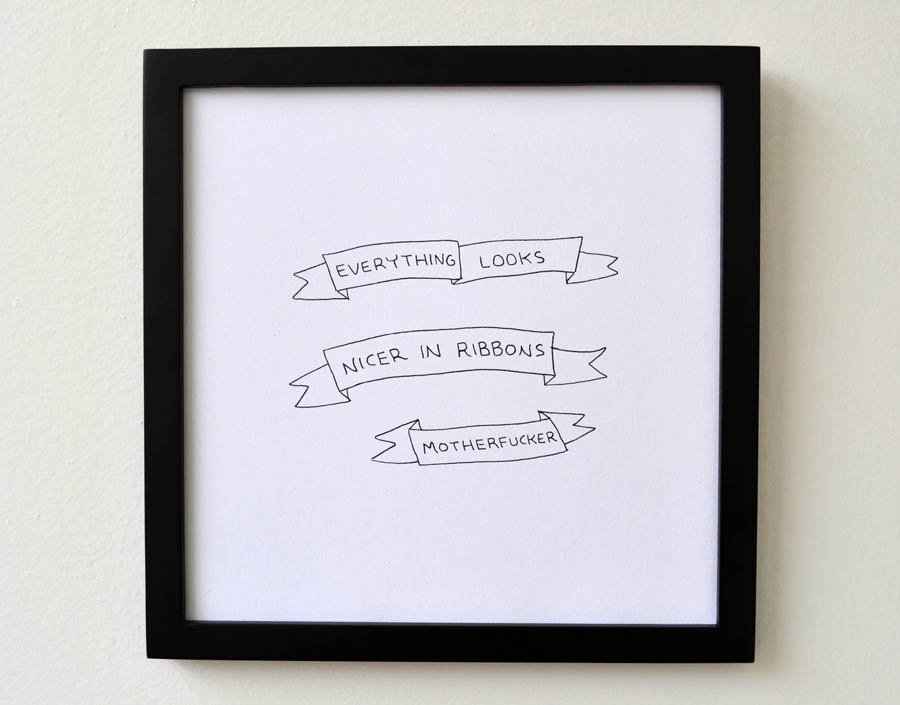 EVERYTHING LOOKS
NICER IN RIBBONS
MOTHERFUCKER